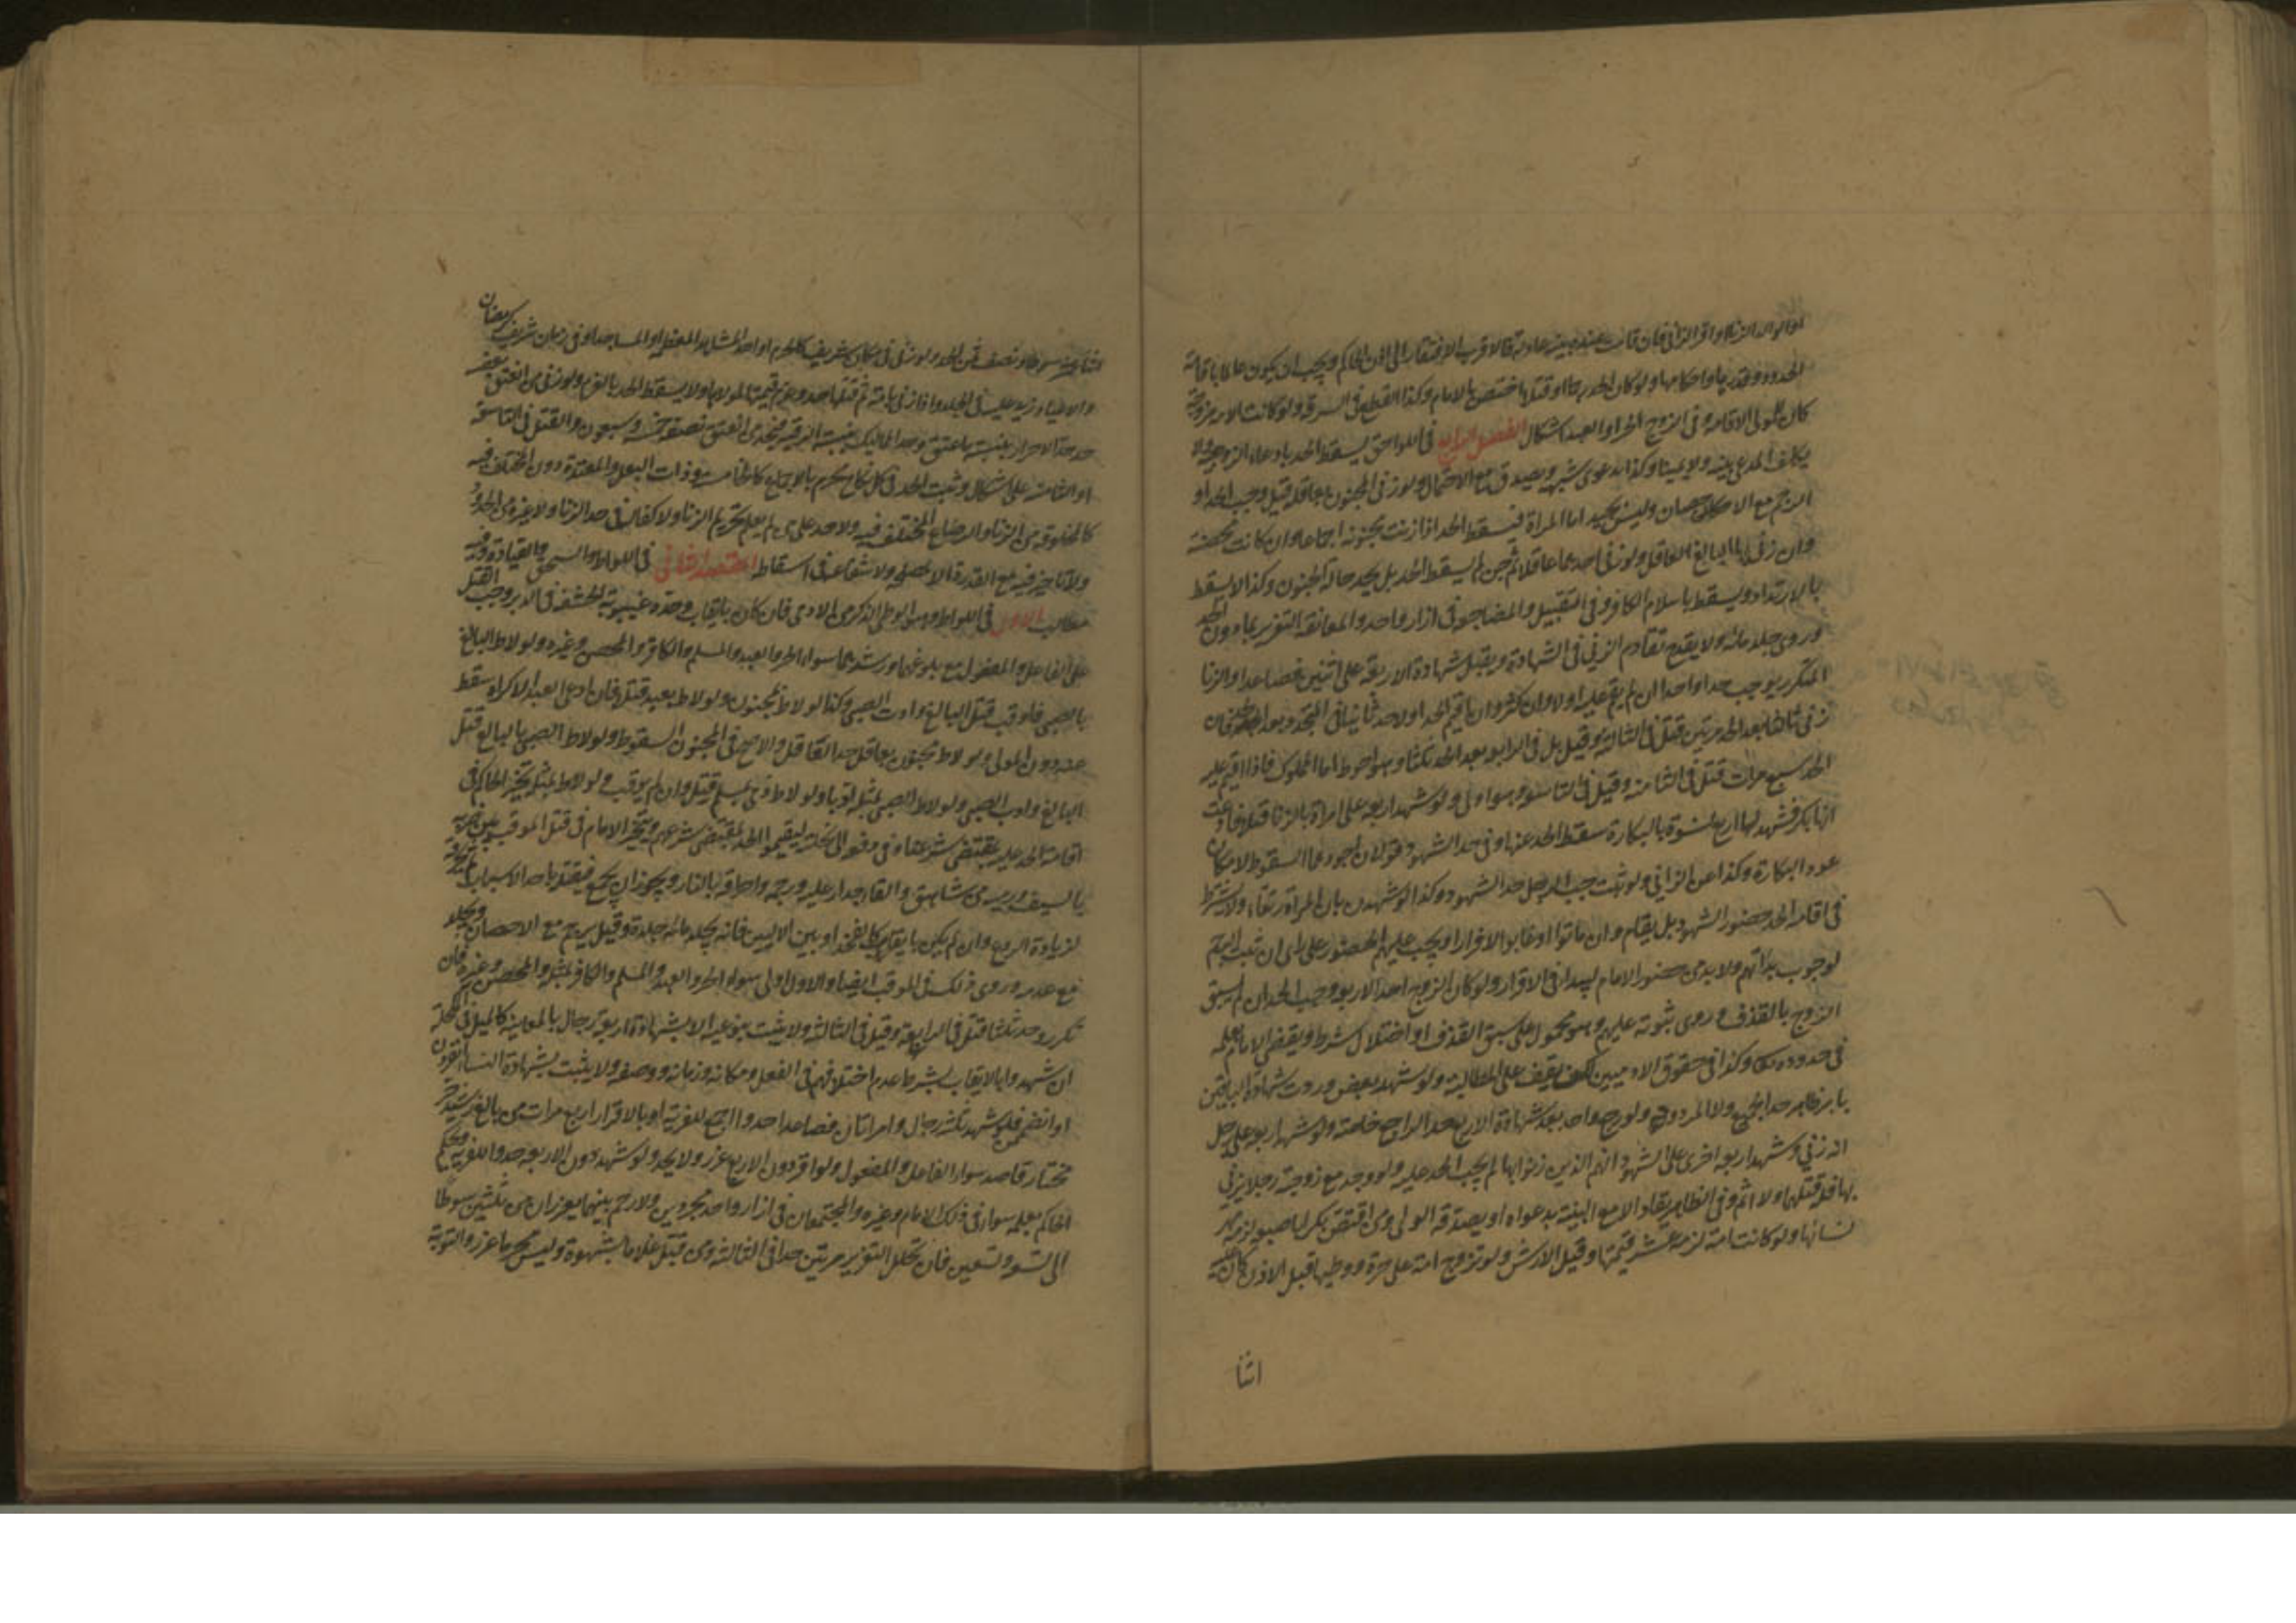 الحدود وقدرها واحكامها ولو كان الحد رجما او قتلا اختص بالامام وكذا القطع في السرقة ولو كانت الامة مزوجة
كان للمولى الاقامة وفي الزوج الحر او العبد اشكال الفصل الرابع في اللواحق يسقط الحد بادعاء الزوجية ولا
يكلف المدعي بينة ولا يمينا وكذا بدعوى شبهة ويصدق مع الاحتمال ولو زنى المجنون بعاقلة قيل وجب الحد او
الرجم مع الاحصان وليس بجيد اما المراة فيسقط الحد اذا زنت مجنونة اجماعا وان كانت محصنة
وان زنى بها البالغ العاقل ولو زنى احدهما عاقلا ثم جن لم يسقط الحد بل يحد حالة الجنون وكذا لا يسقط
بالارتداد ويسقط باسلام الكافر وفي التقبيل والمضاجعة في ازار واحد والمعانقة التعزير بما دون الحد
وروى جلد مائة ولا يقدح تقادم الزنى في الشهادة ويقبل شهادة الاربعة على اثنين فصاعدا والزنا
المتكرر يوجب حدا واحدا ان لم يقم عليه اولا وان كثر وان اقيم الحد اولا حد ثانيا في المتجدد
زنى ثالثا بعد الحد مرتين قتل في الثالثة وقيل بل في الرابعة بعد الحد ثلثا وهو احوط اما المملوك فاذا اقيم عليه
الحد سبع مرات قتل في الثامنة وقيل في التاسعة وهو اولى ولو شهد اربعة على امراة بالزنا قبلا فادعت
انها بكر فشهد لها اربع نسوة بالبكارة سقط الحد عنها وفي حد الشهود قولان اجودهما السقوط لامكان
عود البكارة وكذا عن الزاني ولو ثبت جب الرجل حد الشهود وكذا لو شهدن بان المراة رتقاء ولا يشترط
في اقامة الحد حضور الشهود بل يقام وان ماتوا او غابوا لا فرارا ويجب عليهم الحضور على راى ان ثبت الرجم
لوجوب بداتهم ولا بد من حضور الامام ليبدا في الاقرار ولو كان الزوج احد الاربعة وجب الحد ان لم يسبق
الزوج بالقذف وروى ثبوته عليهم وهو محمول على سبق القذف او اختلال شرط ويقضي الامام بعلمه
في حدوده تعالى وكذا في حقوق الادميين لكن يقف على المطالبة ولو شهد بعض وردت شهادة الباقين
بامر ظاهر حد الجميع ولو رجع واحد بعد شهادة الاربع حد الراجع خاصة ولو شهد اربعة على رجل
انه زنى وشهد اربعة اخرى على الشهود انهم الذين زنوا بها لم يجب الحد عليه ولو وجد مع زوجته رجلا يزني
بها فله قتلهما ولا اثم وفي الظاهر يقاد الا مع البينة بدعواه او يصدقه الولى ومن افتض بكرا باصبعه لزمه مهر
نسائها ولو كانت امة لزمه عشر قيمتها وقيل الارش ولو تزوج امة على حرة ووطيها قبل الاذن كان عليه
اثنا
اثنا عشر سوطا ونصف ثمن الحد ولو زنى في مكان شريف كالحرم او احد المشاهد المعظمة او المساجد او في زمان شريف كرمضان
والاعياد زيد عليه في الجلد واذا زنى بامة ثم قتلها حد وغرم قيمتها لمولاها ولا يسقط الحد بالغرم ولو زنى من انعتق بعضه
حد حد الاحرار بنسبة ما عتق وحد المماليك بنسبة الرقية فيحد من انعتق نصفه خمسة وسبعون والقتل في التاسعة
او الثامنة على اشكال ويثبت الحد في كل نكاح محرم بالاجماع كالخامسة وذات البعل والمعتدة دون المختلف فيه
كالمخلوقة من الزنا والرضاع المختلف فيه ولا حد على من لم يعلم تحريم الزنا ولا كفالة في حد الزنا ولا غيره من الحدود
ولا تاخير فيه مع القدرة الا لمصلحة ولا شفاعة في اسقاطه المقصد الثاني في اللواط والسحق والقيادة وفيه
مطالب الاول في اللواط وهو الوطى الذكر من الادمى فان كان بايقاب وحده غيبوبة الحشفة في الدبر وجب القتل
على الفاعل والمفعول مع بلوغهما ورشدهما سواء الحر والعبد والمسلم والكافر والمحصن وغيره ولو لاط البالغ
بالصبى فاوقب قتل البالغ وادب الصبى وكذا لو لاط بمجنون ولو لاط بعبده قتلا فان ادعى العبد الاكراه سقط
عنه دون المولى ولو لاط مجنون بعاقل حد العاقل والاصح في المجنون السقوط ولو لاط الصبى بالبالغ قتل
البالغ وادب الصبى ولو لاط الصبى بمثله ادبا ولو لاط ذمى بمسلم قتل وان لم يوقب ولو لاط بمثله تخير الحاكم في
اقامة الحد عليه بمقتضى شرعنا وفي دفعه الى اهله ليقيموا الحد بمقتضى شرعهم ويتخير الامام في قتل الموقب بين ضربه
بالسيف ورميه من شاهق والقاء جدار عليه ورجمه واحراقه بالنار ويجوز ان يجمع فيقتله باحد الاسباب ثم يحرقه
لزيادة الردع وان لم يكن بايقاب كالفخذ او بين الاليين فانه يجلد مائة جلدة وقيل يرجم مع الاحصان ويجلد
مع عدمه وروى ذلك في الموقب ايضا والاول اولى سواء الحر والعبد والمسلم والكافر بمثله والمحصن وغيره فان
تكرر وحد ثلثا قتل في الرابعة وقيل في الثالثة ولا يثبت بنوعيه الا بشهادة اربعة رجال بالمعاينة كالميل في المكحلة
ان شهدوا بالايقاب بشرط عدم اختلافهم في الفعل ومكانه وزمانه ووصفه ولا يثبت بشهادة النساء انفردن
او انضممن فلو شهد ثلثة رجال وامراتان فصاعدا حدوا اجمع للفرية او بالاقرار اربع مرات من بالغ رشيد حر
مختار قاصد سواء الفاعل والمفعول ولو اقر دون الاربع عزر ولا يحد ولو شهد دون الاربعة حدوا للفرية ويحكم
الحاكم بعلمه سواء في ذلك الامام وغيره والمجتمعان في ازار واحد مجردين ولا رحم بينهما يعزران من ثلثين سوطا
الى تسعة وتسعين فان تخلل التعزير مرتين حدا في الثالثة ومن قبل غلاما بشهوة وليس بمحرم عزر والتوبة